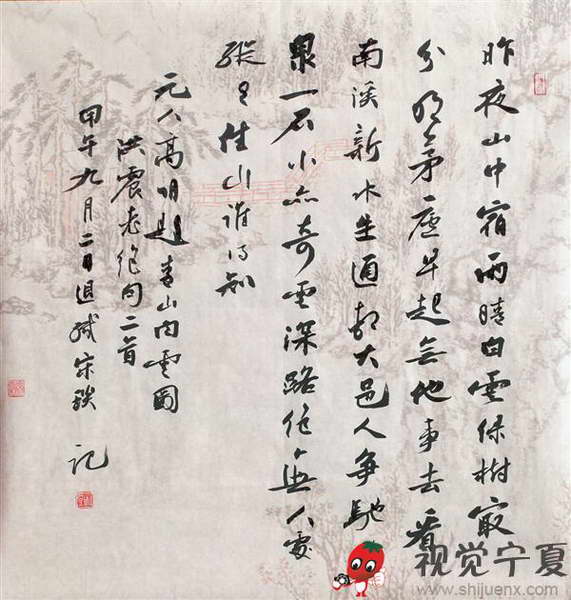 昨夜山中宿雨晴白雲緑樹最
分明茅廬早起無他事去看
南溪新水生通都大邑人争馳
泉一石小亦奇雲深路絶無人處
縱有佳山誰得知
元人高明題青山白雲圖
洪震老絶句二首
甲午九月二日退 宋 記
视觉宁夏
www.shijuenx.com